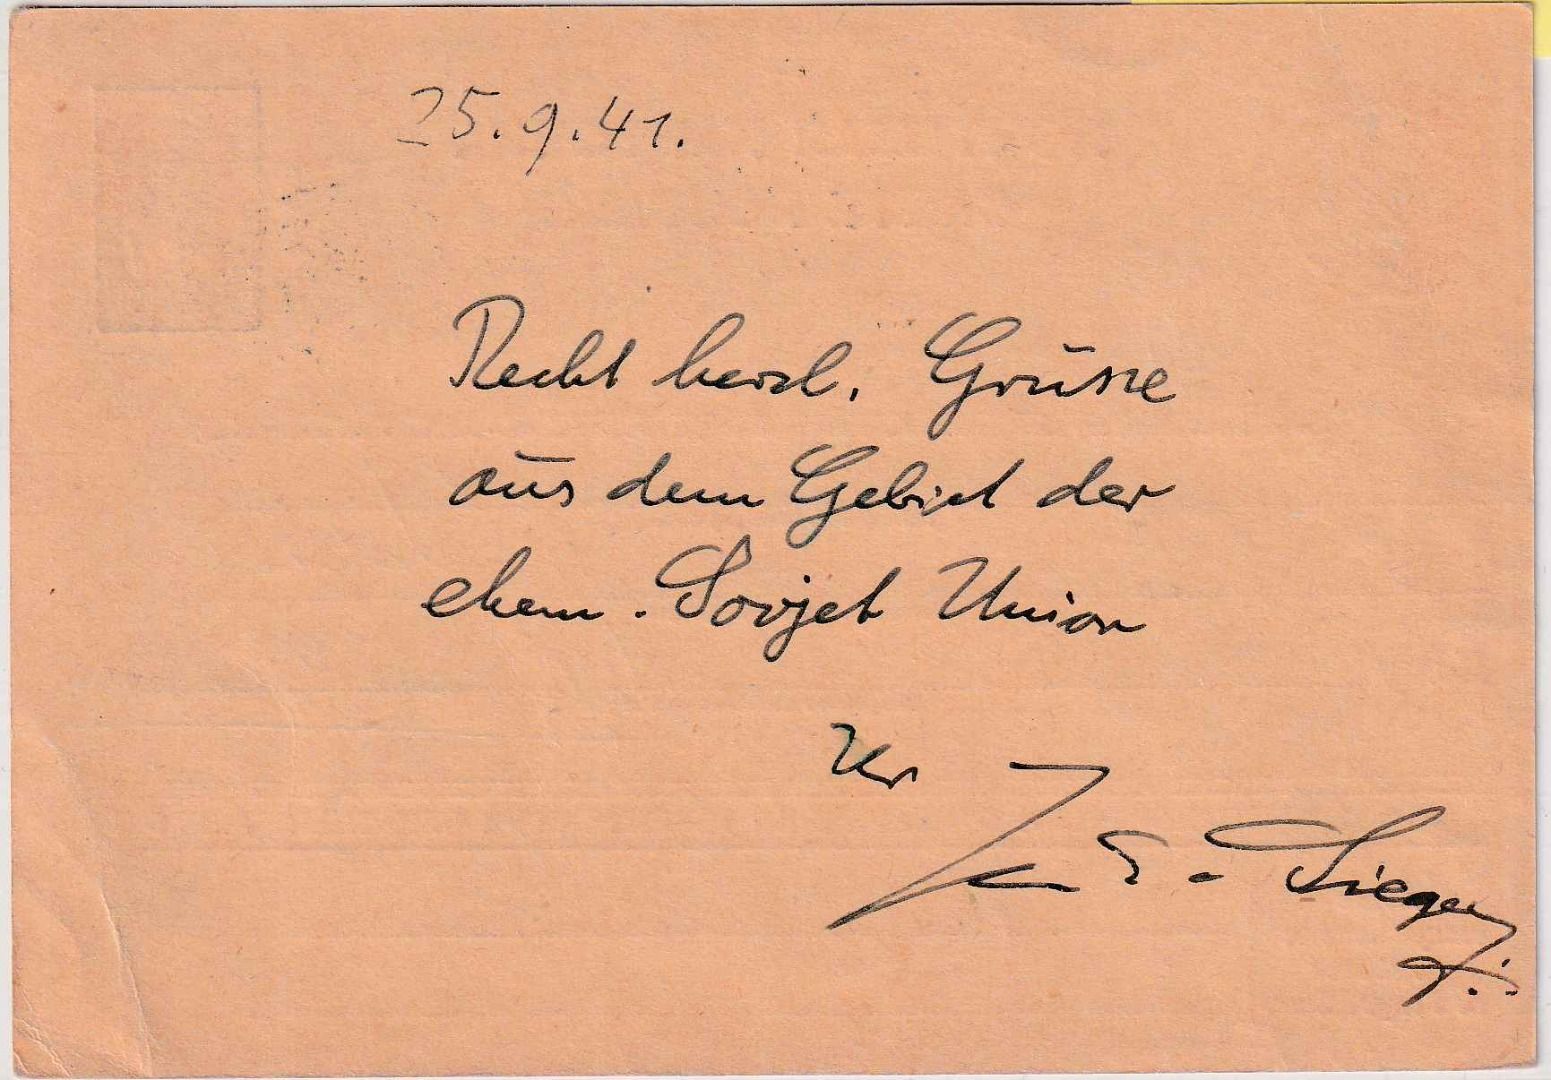 25.9.41.
Recht herzl. Grüsse
aus dem Gebiet der
ehem. Sovjet Union
Ihr
E. Sieger